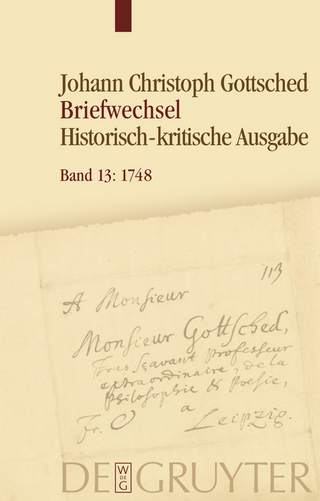 Johann Christoph Gottsched
Briefwechsel
Historisch-kritische Ausgabe
Band 13: 1748
113
A Monsieur
Monsieur Gottsched,
Tres Sçavant Professeur
extraordinaire, de la
Philosophie & Poesie,
Fr. a
Leipzig.
DE GRUYTER
W
DE
G